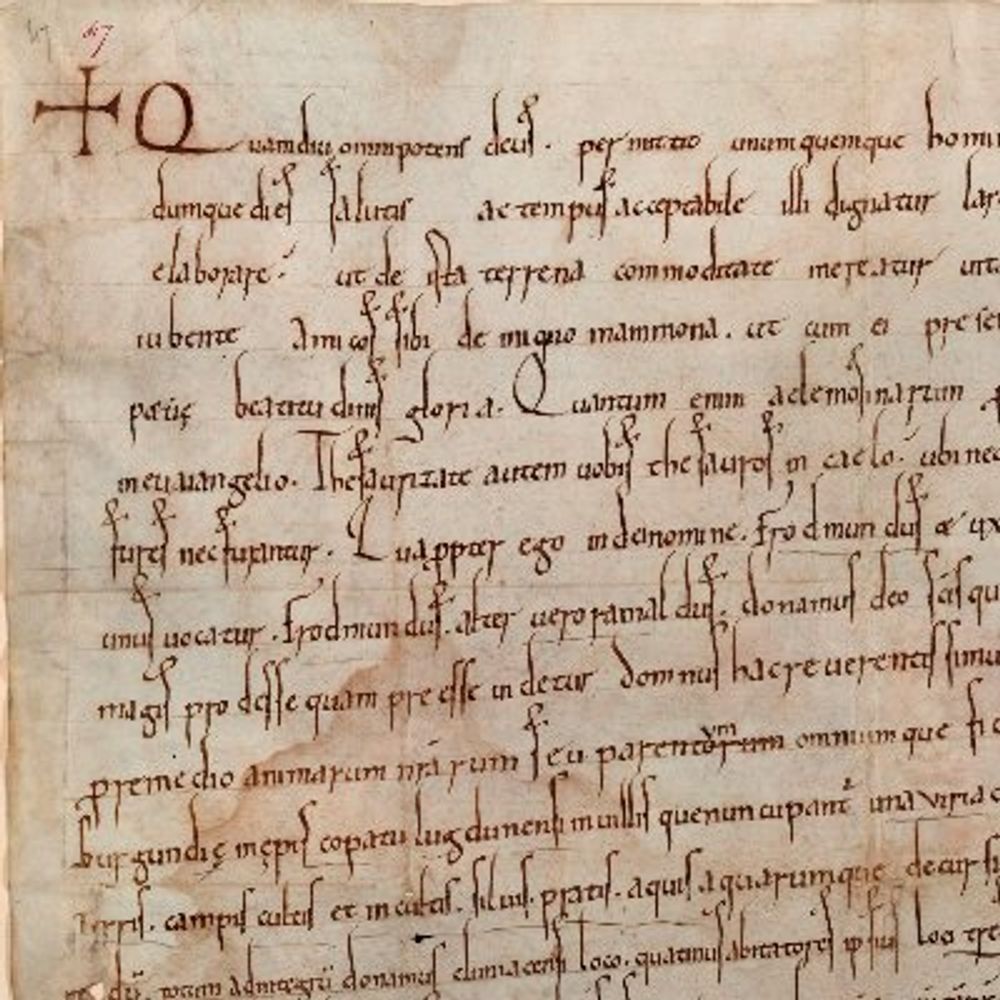 67 67
+ Quamdiu omnipotens deus. permittit unumquemque homi
dumque dies salutis ac tempus acceptabile illi dignatur lar
elaborare. ut de ista terrena commoditate mereatur uita
iubente Amicos sibi de iniquo mammona. ut cum ei prese
beatitudinis gloria. Quantum enim aelemosinarum
in euuangelio. Thesaurizate autem uobis thesauros in caelo. ubi nec
fures nec furantur. Quappter ego in dei nomine. Frodmundus et ux
unus uocatur. Frodmundus. alter uero rainaldus. donamus deo scisqu
magis prodesse quam preesse uidetur domnus hac reuerentissimu
premedio animarum nrarum seu parentorum um omniumque fi
burgundię in episcopatu lugdunensi in uillis que nuncupant una uiria
terris. campis cultis et incultis. siluis. pratis. aquis aquarumque decursi
totum ad integrū donamus cluniacensi loco. quatinus abitatores ipsius loci